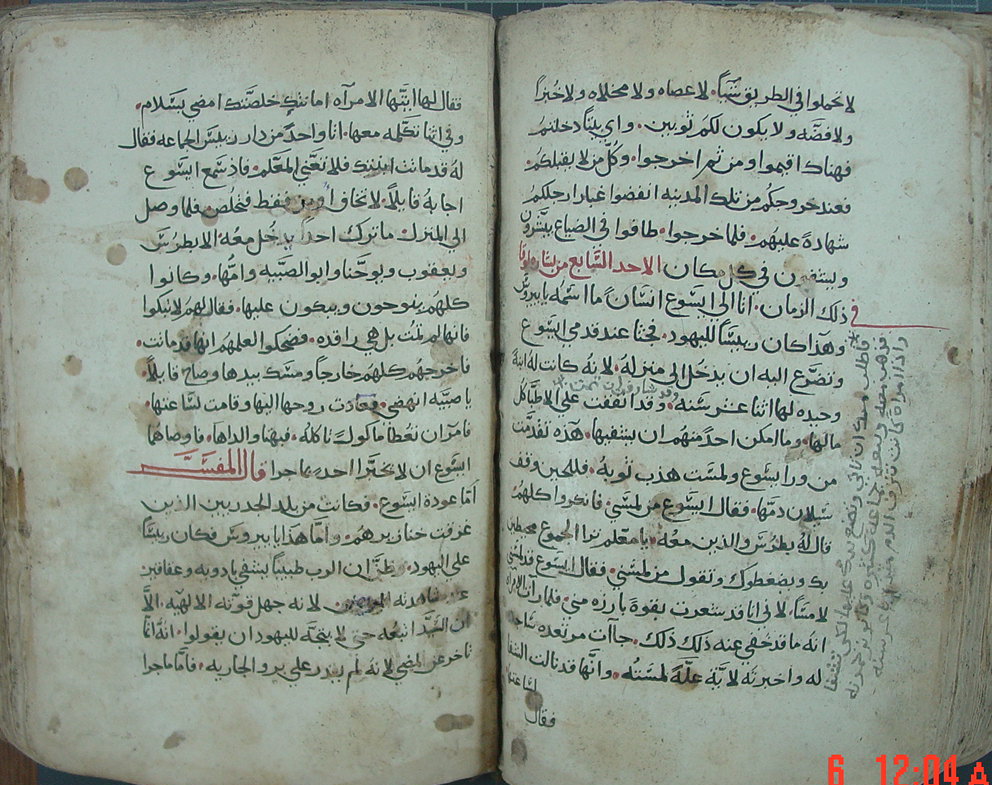 لا تحملوا في الطريق شياً. لا عصاه ولا مخلاه ولا خبزاً
ولا فضه ولا يكون لكم ثوبين. واي بيتاً دخلتم
فهناك اقيموا ومن ثم اخرجوا. وكل من لا يقبلكم.
فعند خروجكم من تلك المدينه انفضوا غبار ارجلكم
شهادة عليهم. فلما خرجوا. طافوا في الضياع يبشرون
ويشفون في كل مكان الاحد السابع من بشارة لوقا
في ذلك الزمان. اتا الى ايسوع انسان ما اسمه يايروس
وهذا كان رييساً لليهود. فجثا عند قدمي ايسوع
وتضرع اليه ان يدخل الى منزله. لانه كانت له ابنة
وحيده لها اثنا عشر سنه. وقد انفقت على الاطبا كل
مالها. وما امكن احد منهم ان يشفيها. هذه تقدمت
من ورا يسوع ولمست هدب ثوبه. فللحين وقف
سيلان دمها. فقال ايسوع من لمسني. فانكروا كلهم
قال له بطرس والذين معه. يا معلم ترا الجموع محيطين
بك ويضغطوك وتقول من لمسني. فقال ايسوع قد لمسني
لامساً. لاني انا قد شعرت بقوة بارزه مني. فلما رات الامراه
انه ما قد خفي عنه ذلك ذلك. جاات مرتعده ساجده
له واخبرته لاية علة لمسته. وانها قد نالت الشفا
لساعتها
فقال
وقد شارفت ان تموت
فذهب معه وتبعه جماعه كثيره وكانوا يزحموه
واذا امراة كانت تنزف الدم منذ اثنا عشر سنه
فقال لها ايتها الامرآه امانتك خلصتك امضي بسلام.
وفي اثنا تكلمه معها. اتا واحد من دار رييس الجماعه فقال
له قد ماتت ابنتك فلا تعني المعلم. فاذ سمع ايسوع
اجابه قايلاً. لا تخاف اومن فقط فتخلص. فلما وصل
الى المنزل. ما ترك احداً يدخل معه الا بطرس
ويعقوب ويوحنا وابو الصبيه وامها. وكانوا
كلهم ينوحون ويبكون عليها. فقال لهم لا تبكوا
فانها لم تمت بل هي راقده. فضحكوا لعلمهم انها قد ماتت.
فاخرجهم كلهم خارجاً ومسك بيدها وصاح قايلاً.
يا صبيه انهضي. فعادت روحها اليها وقامت لساعتها.
فامر ان تعطا ماكولاً تاكله. فبهتا والداها. فاوصاهما
ايسوع ان لا يخبرا احد بما جرا قال المفسر
اما عودة ايسوع. فكانت من بلد الجدريين الذين
غرقت خنازيرهم. واما هذا يايروس فكان رييساً
على اليهود. ظن ان الرب طبيباً يشفي بادويه وعقاقير
عند مشاهدته المريض. لانه جهل قوته الالهيه. الا
ان السيد اتبعه حتى لا يتجه لليهود ان يقولوا. انه انما
تاخر عن المضي لانه لم يقدر على برو الجاريه. فاما ماجرا